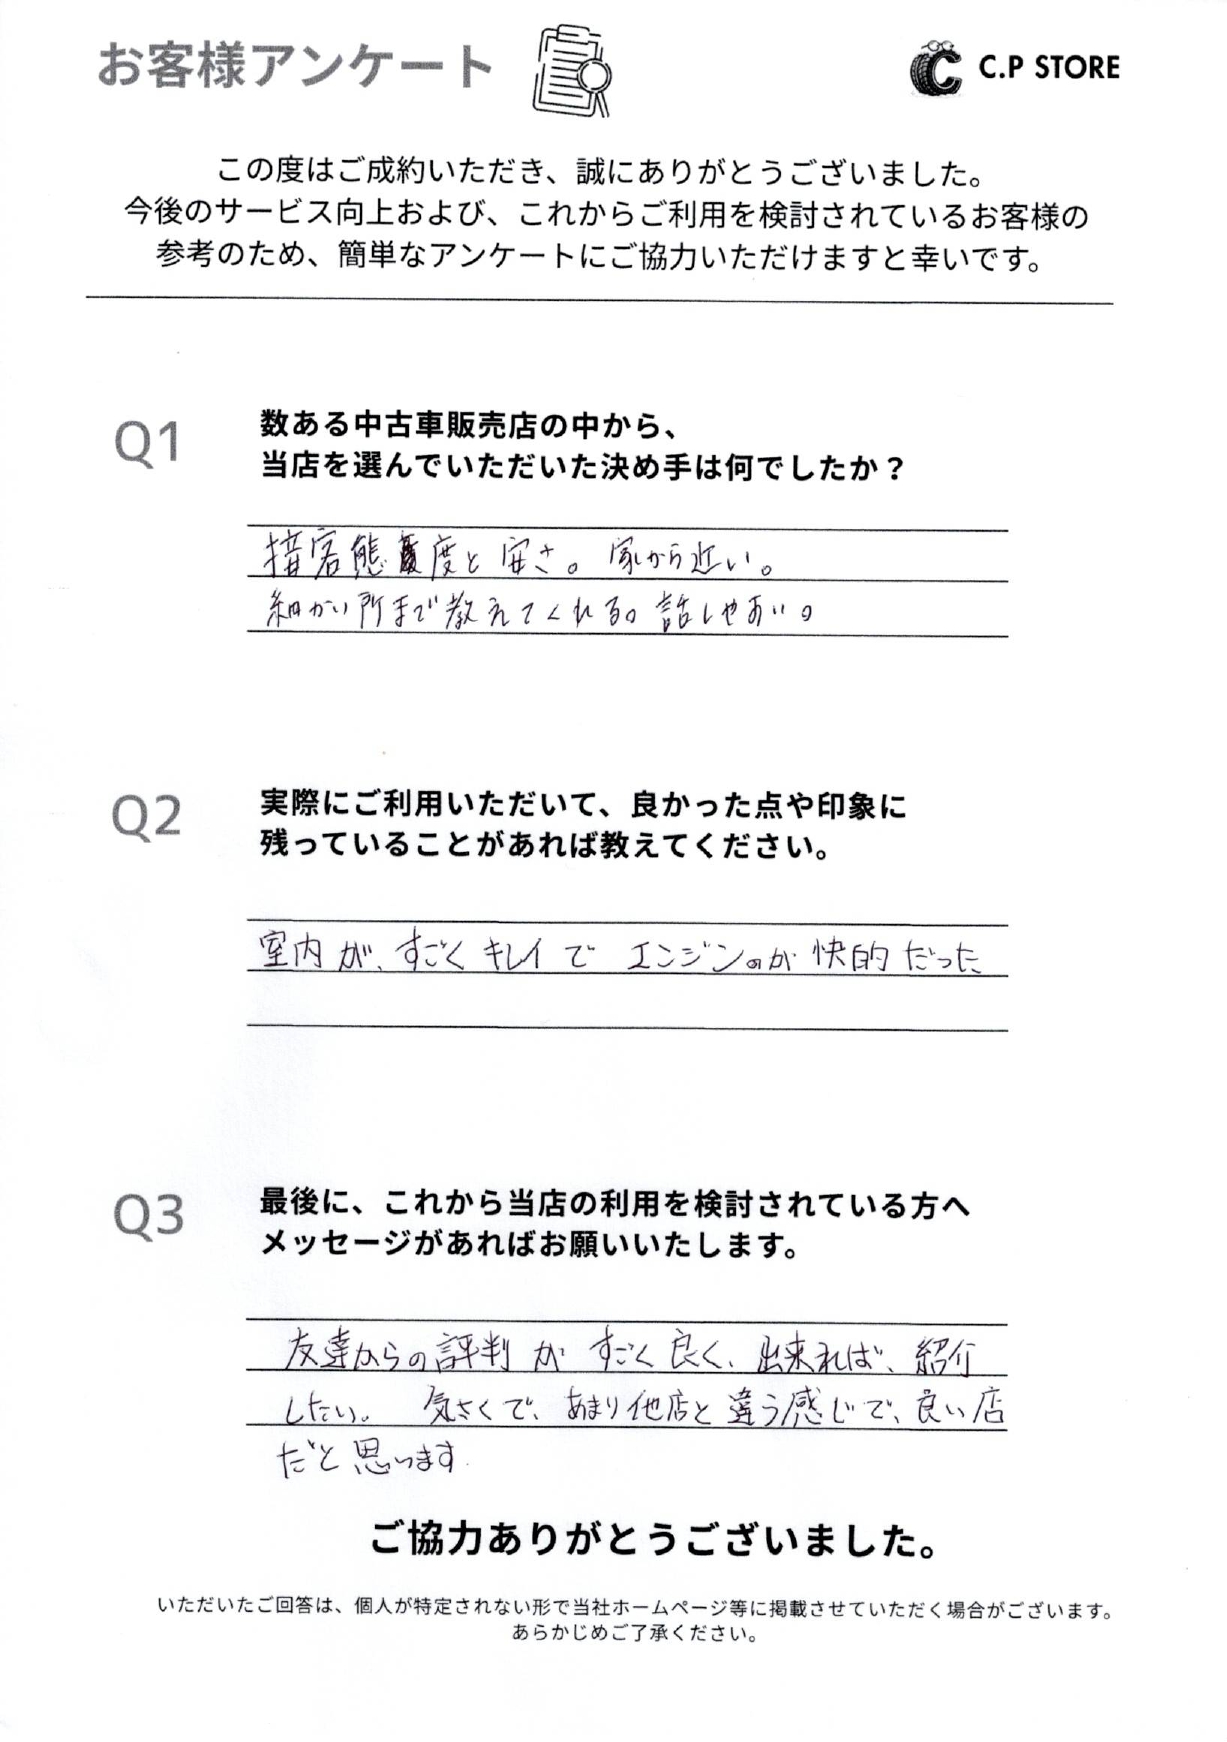 お客様アンケート
C.P STORE
この度はご成約いただき、誠にありがとうございました。
今後のサービス向上および、これからご利用を検討されているお客様の
参考のため、簡単なアンケートにご協力いただけますと幸いです。
Q1
数ある中古車販売店の中から、
当店を選んでいただいた決め手は何でしたか？
接客態度と安さ。家から近い。
細かい所まで教えてくれる。話しやすい。
Q2
実際にご利用いただいて、良かった点や印象に
残っていることがあれば教えてください。
室内が、すごくキレイでエンジンのが快的だった
Q3
最後に、これから当店の利用を検討されている方へ
メッセージがあればお願いいたします。
友達からの評判がすごく良く、出来れば、紹介
したい。気さくで、あまり他店と違う感じで、良い店
だと思います
ご協力ありがとうございました。
いただいたご回答は、個人が特定されない形で当社ホームページ等に掲載させていただく場合がございます。
あらかじめご了承ください。